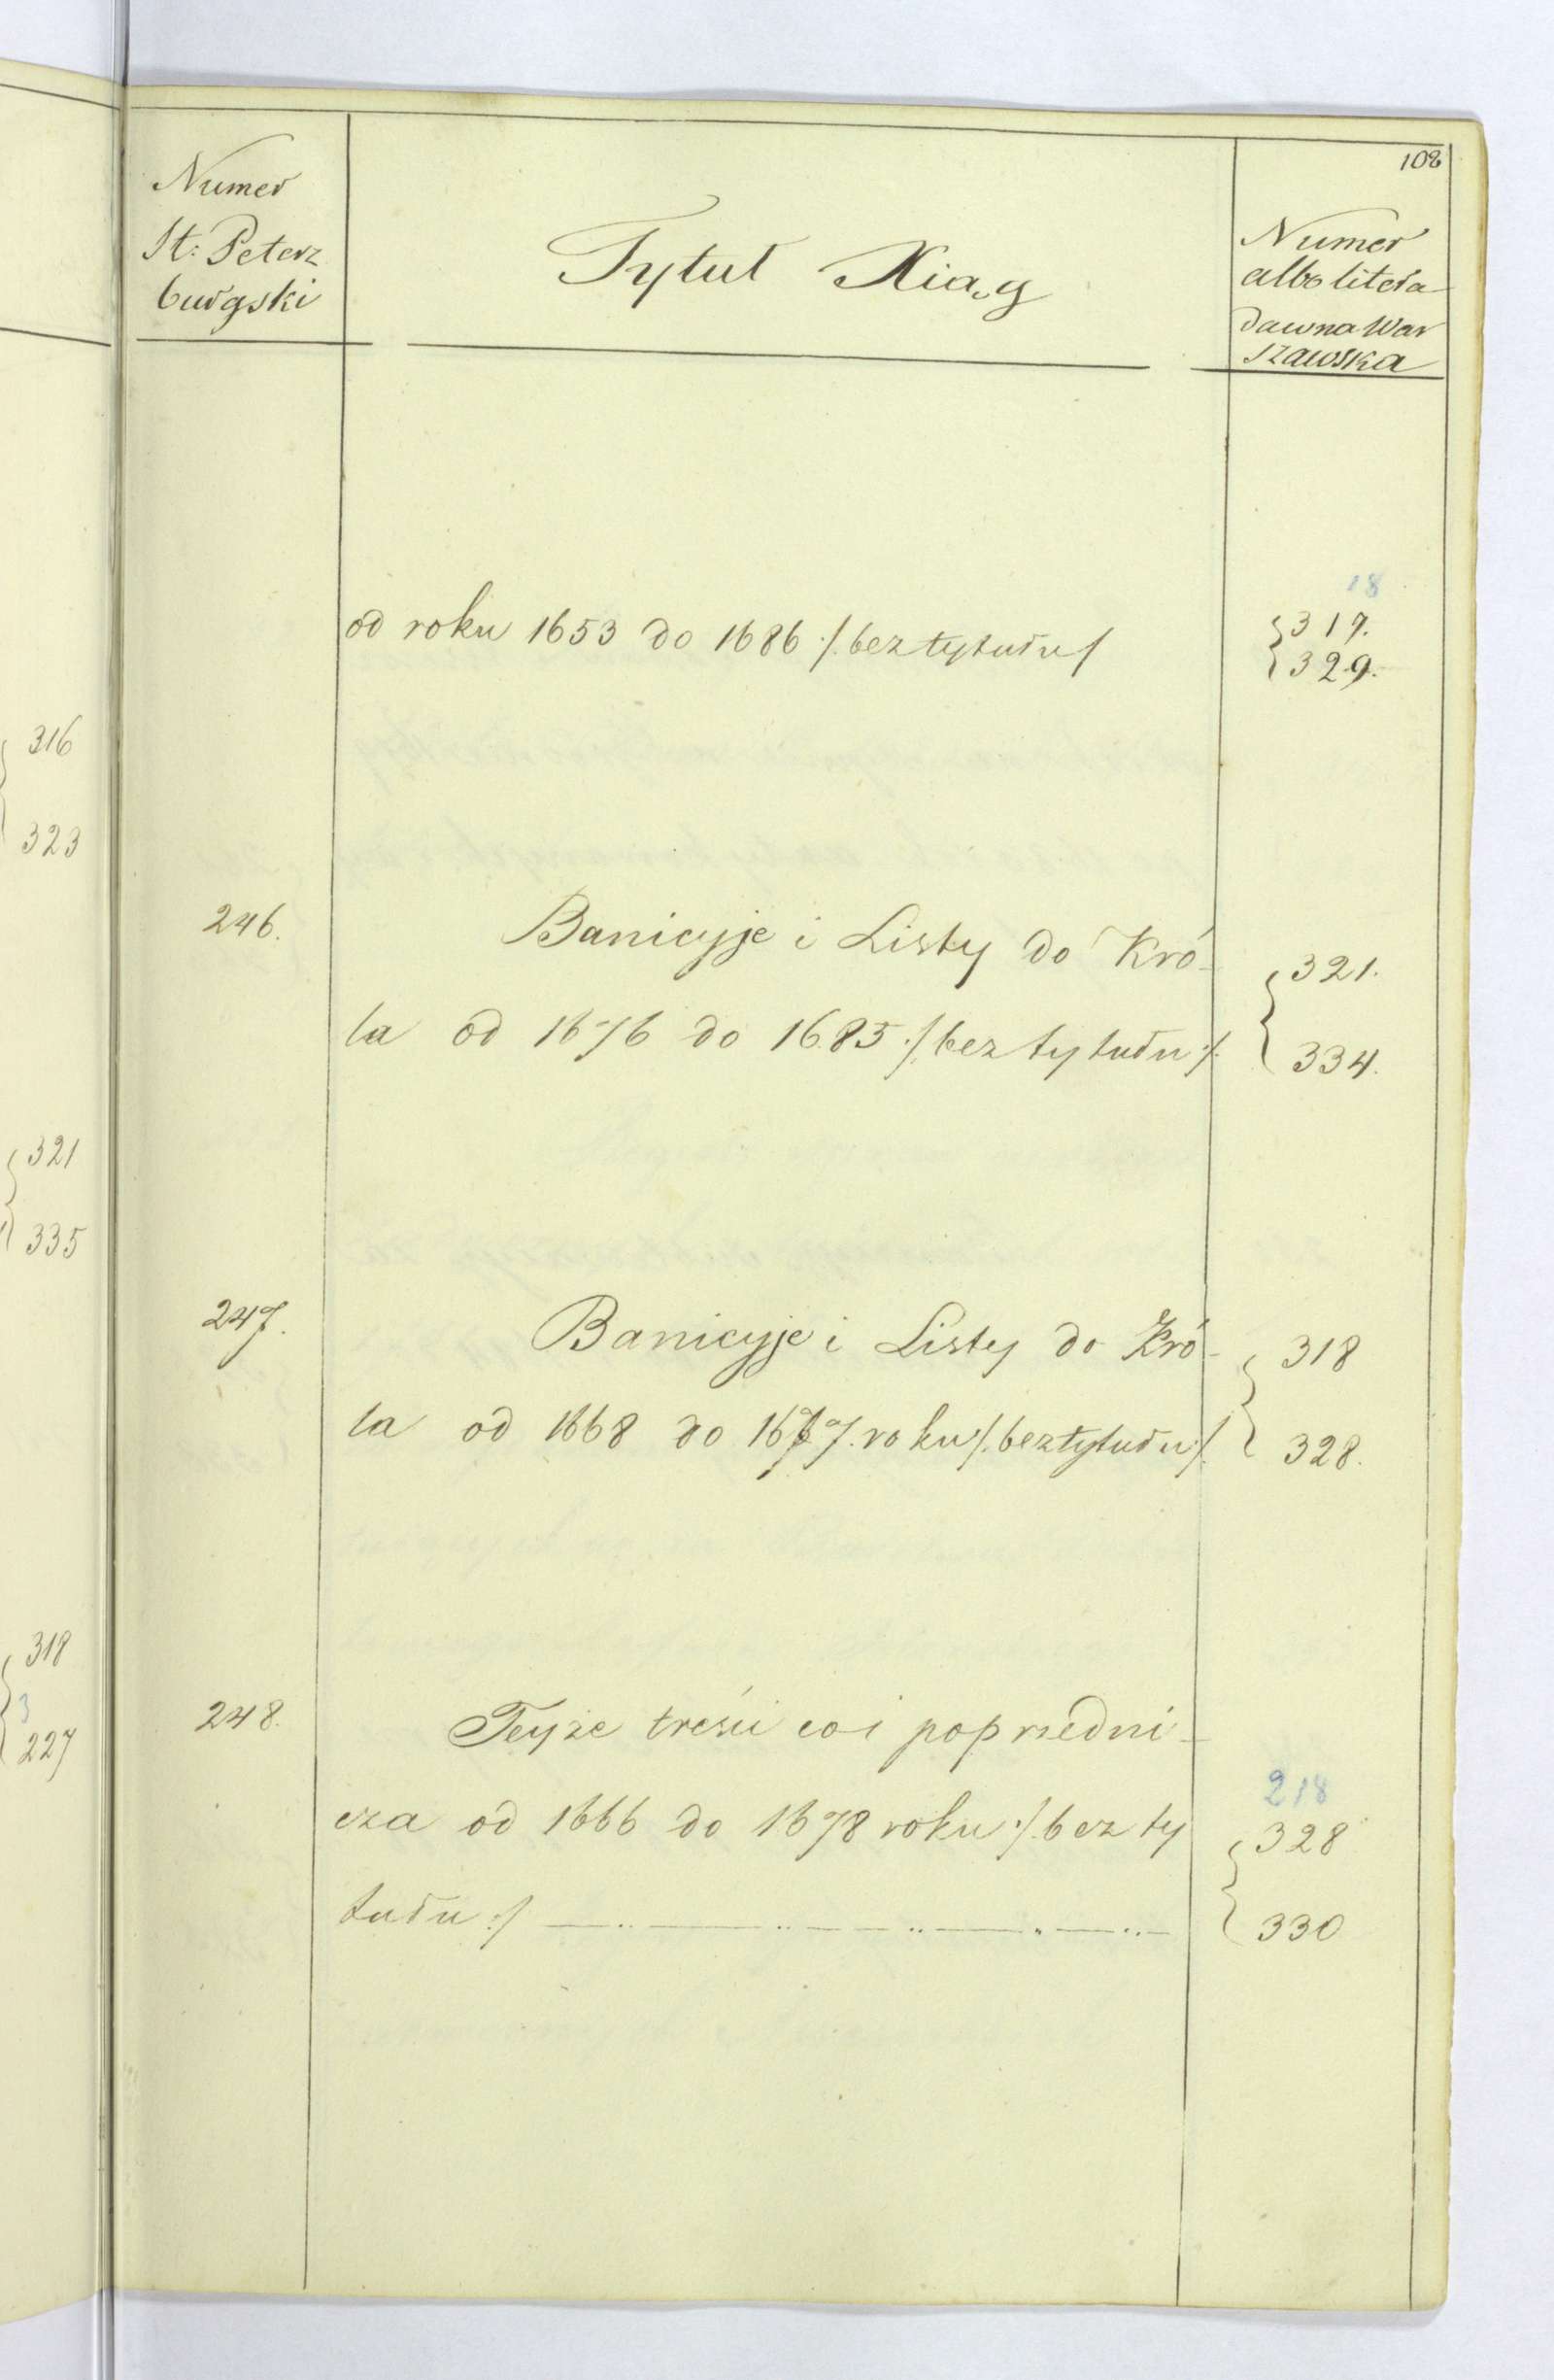 316
323
321
335
318
3
227
108
Numer
St: Peterz
burgski
Tytuł Xiąg
Numer
albo litera
dawna War
szawska
18
od roku 1653 do 1686 ./. bez tytułu/
317.
329.
246.
Banicyje i Listy do Kró-
321.
la od 1676 do 1685 ./. bez tytułu ./.
334.
247.
Banicyje i Listy do Kró-
318
la od 1668 do 1677. roku ./. bez tytułu ./.
328.
248.
Teyże treści co i poprzedni-
218
cza od 1666 do 1678 roku ./. bez ty
328
tułu ./
330